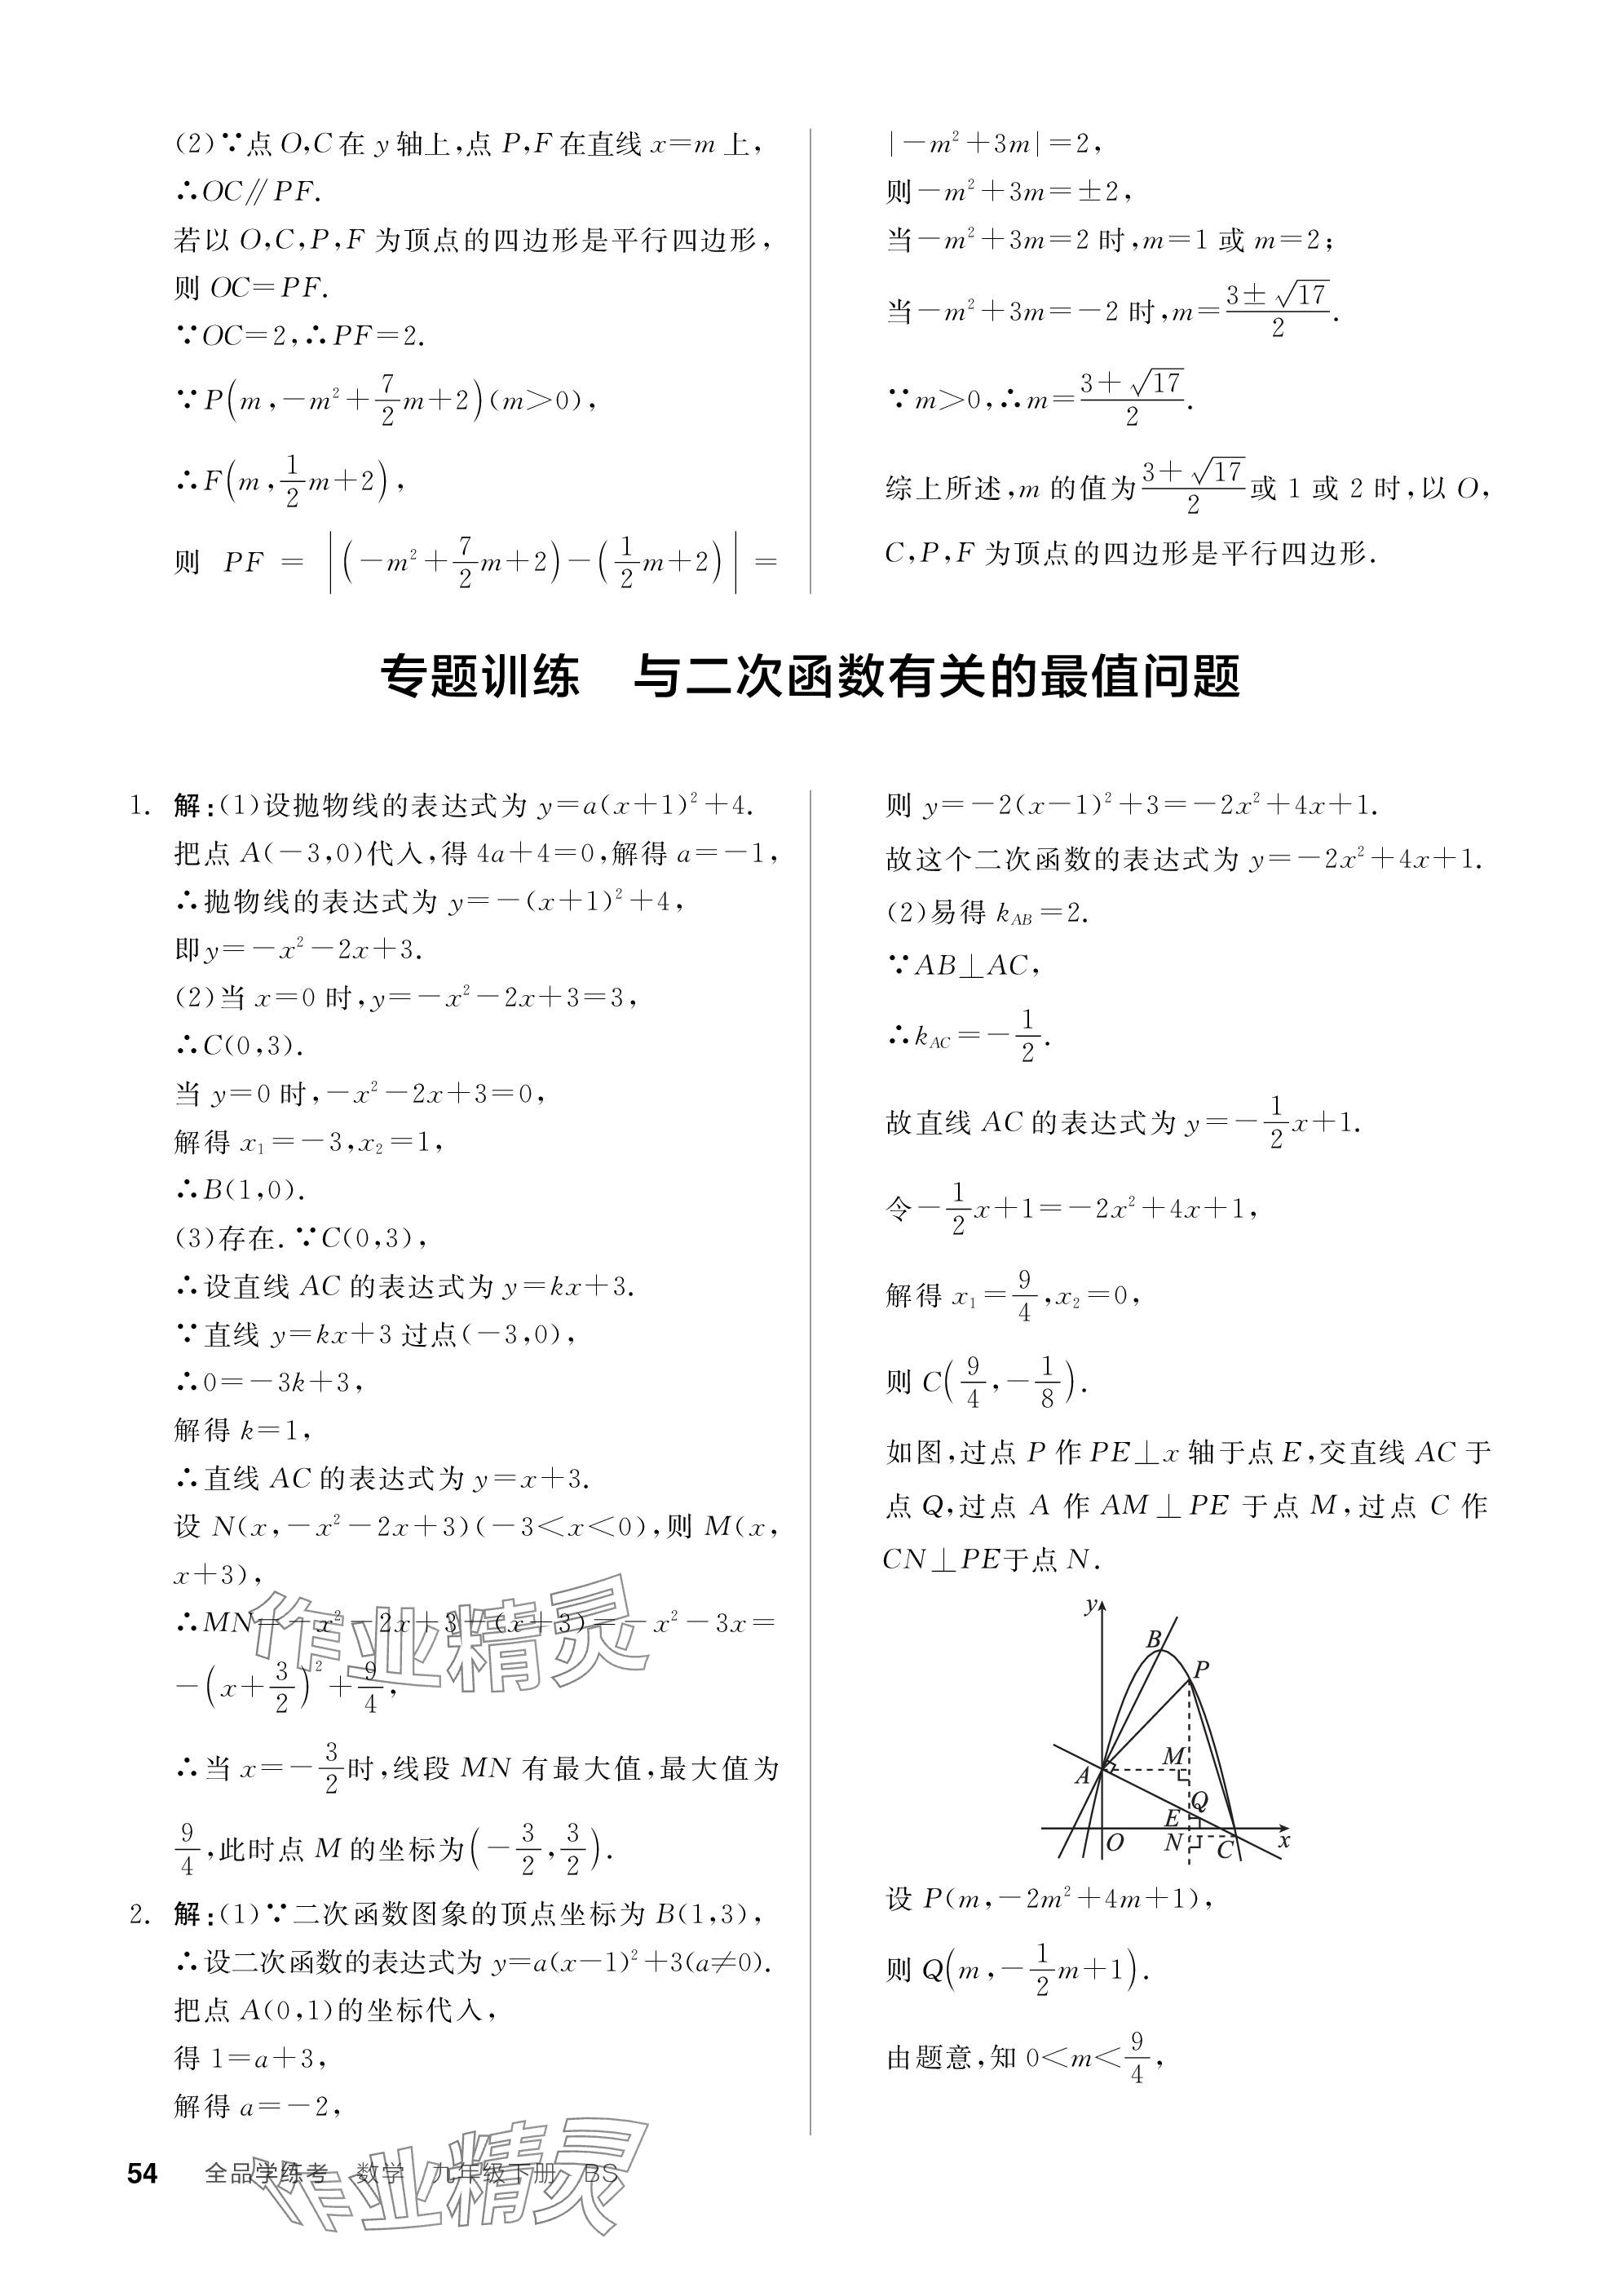 (2)∵点 O,C 在 y 轴上,点 P,F 在直线 x=m 上,
∴OC∥PF.
若以 O,C,P,F 为顶点的四边形是平行四边形,
则 OC=PF.
∵OC=2,∴PF=2.
∵P(m,-m²+7/2m+2)(m>0),
∴F(m,1/2m+2),
则 PF = |(-m²+7/2m+2)-(1/2m+2)| =
|-m²+3m|=2,
则-m²+3m=±2,
当-m²+3m=2 时,m=1 或 m=2;
当-m²+3m=-2 时,m=(3±√17)/2.
∵m>0,∴m=(3+√17)/2.
综上所述,m 的值为(3+√17)/2或 1 或 2 时,以 O,
C,P,F 为顶点的四边形是平行四边形.
专题训练 与二次函数有关的最值问题
1. 解:(1)设抛物线的表达式为 y=a(x+1)²+4.
把点 A(-3,0)代入,得 4a+4=0,解得 a=-1,
∴抛物线的表达式为 y=-(x+1)²+4,
即y=-x²-2x+3.
(2)当 x=0 时,y=-x²-2x+3=3,
∴C(0,3).
当 y=0 时,-x²-2x+3=0,
解得 x₁=-3,x₂=1,
∴B(1,0).
(3)存在.∵C(0,3),
∴设直线 AC 的表达式为 y=kx+3.
∵直线 y=kx+3 过点(-3,0),
∴0=-3k+3,
解得 k=1,
∴直线 AC 的表达式为 y=x+3.
设 N(x,-x²-2x+3)(-3<x<0),则 M(x,
x+3),
∴MN=-x²-2x+3-(x+3)=-x²-3x=
-(x+3/2)²+9/4,
∴当 x=-3/2时,线段 MN 有最大值,最大值为
9/4,此时点 M 的坐标为(-3/2,3/2).
2. 解:(1)∵二次函数图象的顶点坐标为 B(1,3),
∴设二次函数的表达式为 y=a(x-1)²+3(a≠0).
把点 A(0,1)的坐标代入,
得 1=a+3,
解得 a=-2,
则 y=-2(x-1)²+3=-2x²+4x+1.
故这个二次函数的表达式为 y=-2x²+4x+1.
(2)易得 k_AB=2.
∵AB⊥AC,
∴k_AC=-1/2.
故直线 AC 的表达式为 y=-1/2x+1.
令-1/2x+1=-2x²+4x+1,
解得 x₁=9/4,x₂=0,
则 C(9/4,-1/8).
如图,过点 P 作 PE⊥x 轴于点 E,交直线 AC 于
点 Q,过点 A 作 AM⊥PE 于点 M,过点 C 作
CN⊥PE于点 N.
y
B
P
M
A
Q
E
O
N
C
x
设 P(m,-2m²+4m+1),
则 Q(m,-1/2m+1).
由题意,知 0<m<9/4,
作业精灵
54 全品学练考 数学 九年级下册 BS
作业精灵